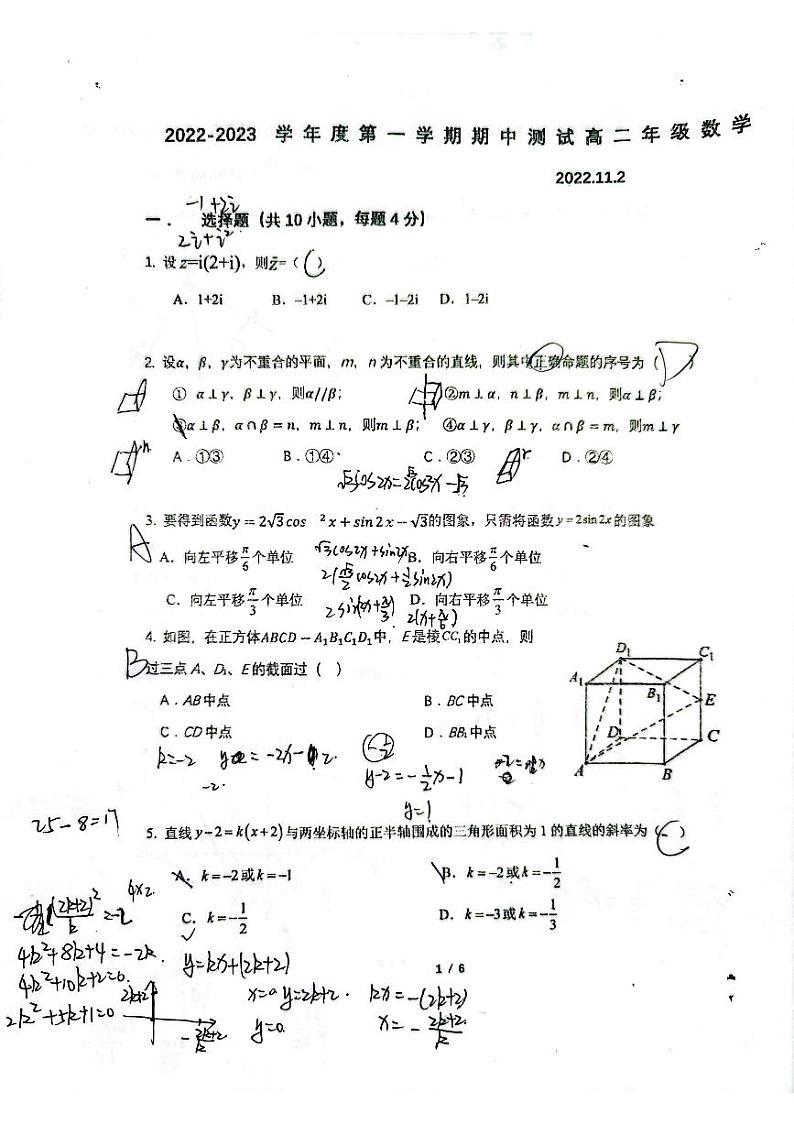 2022-2023 学年度第一学期期中测试高二年级数学
2022.11.2
-1+2i
一． 选择题（共10小题，每题4分）
2i+i²
1. 设z=i(2+i)，则z̄=（ C ）
A．1+2i B．-1+2i C．-1-2i D．1-2i
2. 设α，β，γ为不重合的平面，m，n为不重合的直线，则其中正确命题的序号为（ D ）
① α⊥γ，β⊥γ，则α//β； ②m⊥α，n⊥β，m⊥n，则α⊥β；
③α⊥β，α∩β=n，m⊥n，则m⊥β； ④α⊥γ，β⊥γ，α∩β=m，则m⊥γ
A．①③ B．①④ C．②③ D．②④
√3cos2x=2√3cos²x-√3
3. 要得到函数y=2√3cos ²x+sin2x-√3的图象，只需将函数y=2sin2x的图象
A
√3cos2x+sin2x
A．向左平移π/6个单位 B．向右平移π/6个单位
2(√3/2cos2x+1/2sin2x)
C．向左平移π/3个单位 D．向右平移π/3个单位
2sin(2x+π/3) 2(x+π/6)
4. 如图，在正方体ABCD-A₁B₁C₁D₁中，E是棱CC₁的中点，则
B 过三点A、D₁、E的截面过（ ）
A．AB中点 B．BC中点
C．CD中点 D．BB₁中点
D₁ C₁ A₁ B₁ E D C A B
k=-2 y=-2x-2.
-2.
-1/2
y-2=-1/2x-1
y=1
25-8=17
5. 直线y-2=k(x+2)与两坐标轴的正半轴围成的三角形面积为1的直线的斜率为（ C ）
A．k=-2或k=-1 B．k=-2或k=-1/2
C．k=-1/2 D．k=-3或k=-1/3
4×2
(2k+2)²/k=-2
4k²+8k+4=-2k.
4k²+10k+2=0.
2k²+5k+1=0
2k+2
-2k+2/k
y=kx+(2k+2)
x=0 y=2k+2.
y=0.
kx=-(2k+2)
x=-2k+2/k
1 / 6